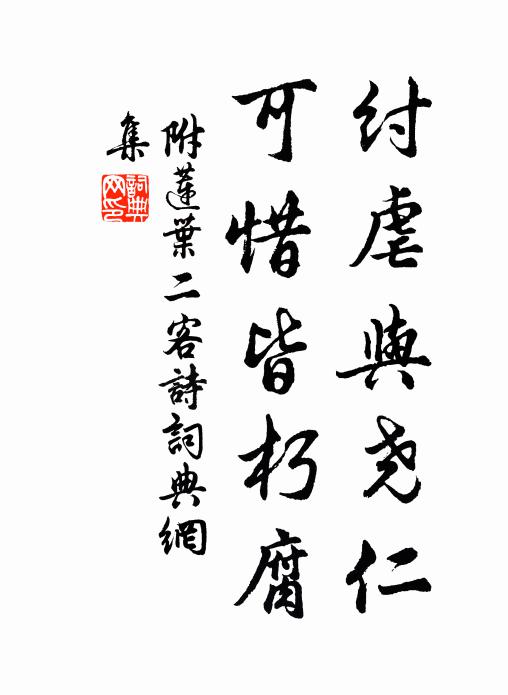 紂虐與堯仁
可惜皆朽腐
附蓮葉二客詩詞典網
集
詞典
网印